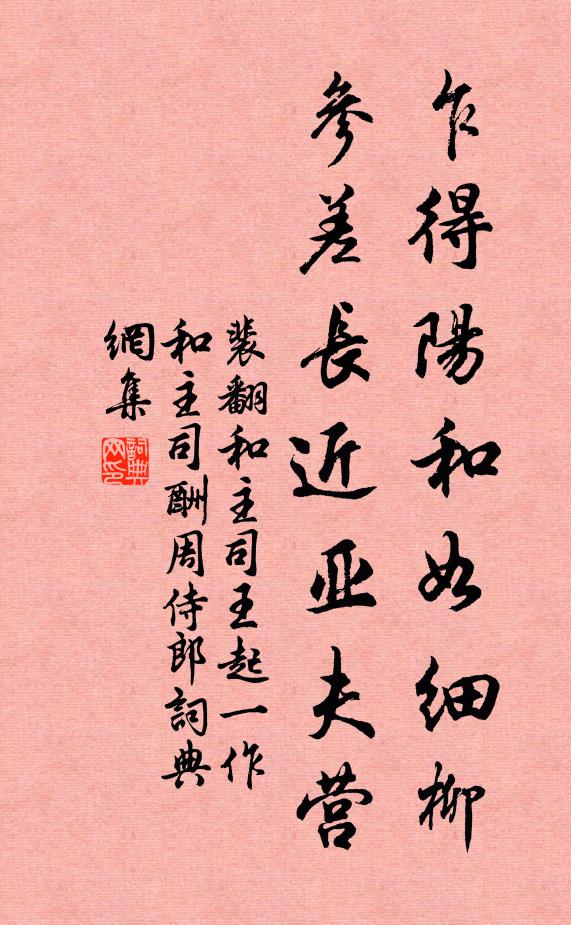 乍得陽和如細柳
參差長近亚夫营
裴翻和主司王起一作
和主司酬周侍郎詞典
網集
詞典網印